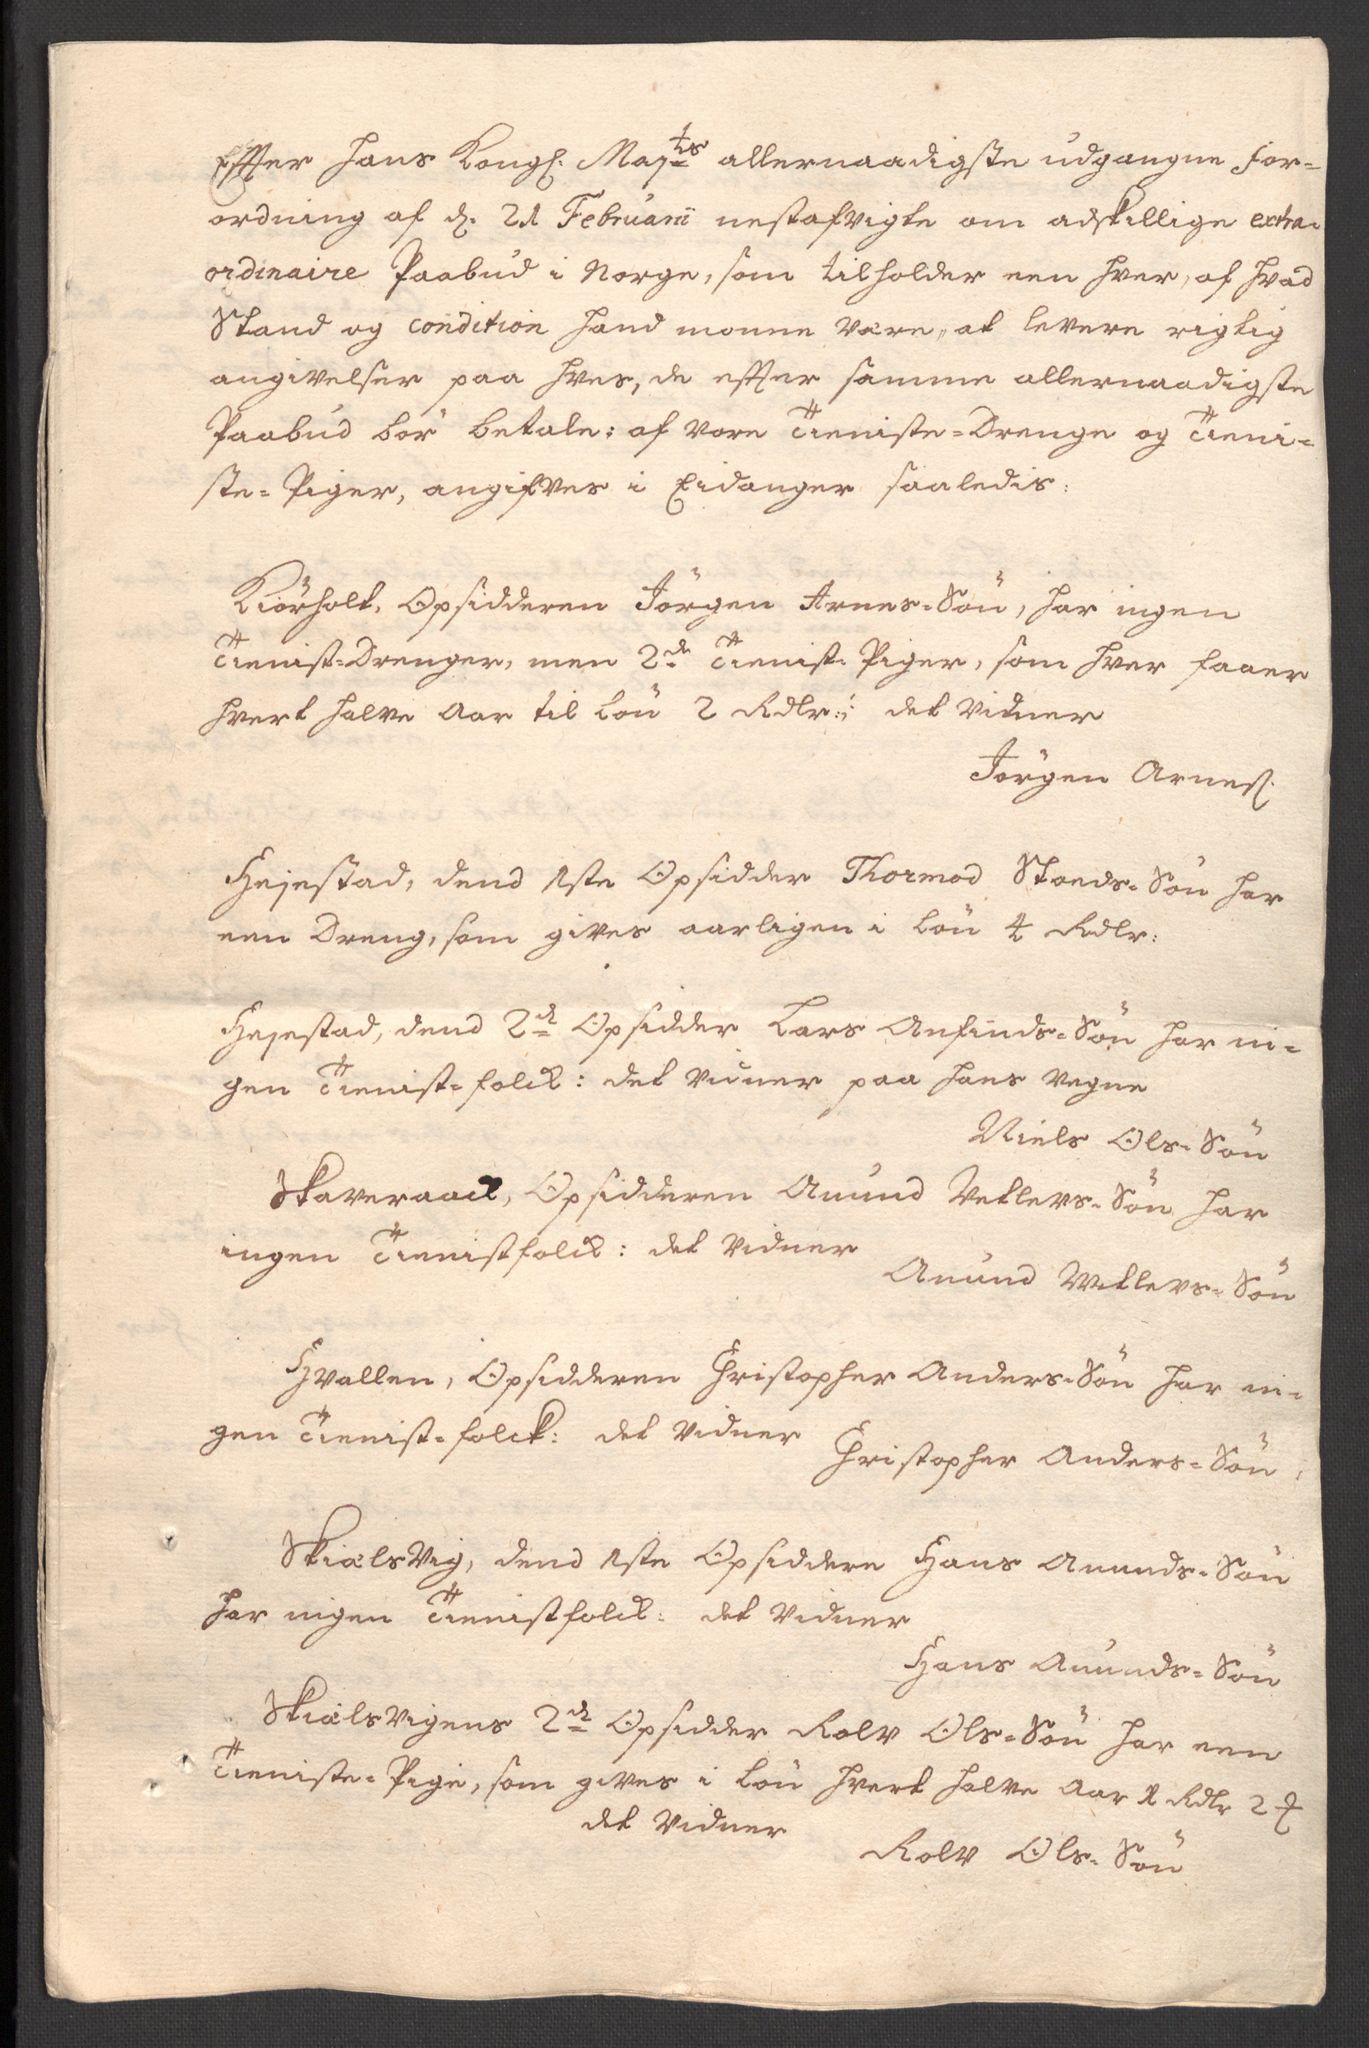 Effter Hans Kongl. Maj:ts allernaadigste udgangne For-
ordning af d. 21 Februarii nestafvigte om adskillige extra-
ordinaire Paabud i Norge, som tilholder een hver, af hvad
Stand og condition hand monne være, at levere rigtig
angivelser paa hves, de effter samme allernaadigste
Paabud bör betale: af vore Tieniste-Drenge og Tieni-
ste-Piger, angifves i Eidanger saaledis:
Kiörholt, Opsidderen Jörgen Arnes-Sön, har ingen
Tienist-Drenger, men 2de Tienist-Piger, som hver faaer
hvert halve Aar til Lön 2 Rdlr: det vidner
Jörgen Arness:
Heiestad, dend 1ste Opsidder Thormod Stoeds-Sön har
een Dreng, som gives aarligen i Lön 4 Rdlr:
Heiestad, dend 2d Opsidder Lars Anfinds-Sön har in-
gen Tienist-folck: det vidner paa hans vegne
Niels Ols-Sön
Skaveraack, Opsidderen Anund Vetlevs-Sön har
ingen Tienistfolck: det vidner
Anund Vetlevs-Sön
Hvallen, Opsidderen Christopher Anders-Sön har in-
gen Tienist-folck: det vidner
Christopher Anders-Sön
Skiælsvig, dend 1ste Opsiddere Hans Anunds-Sön
har ingen Tienistfolck: det vidner
Hans Anunds-Sön
Skiælsvigens 2d Opsidder Rolv Ols-Sön har een
Tieniste-Pige, som gives i Lön hvert halve Aar 1 Rdlr 2
det vidner
Rolv Ols-Sön